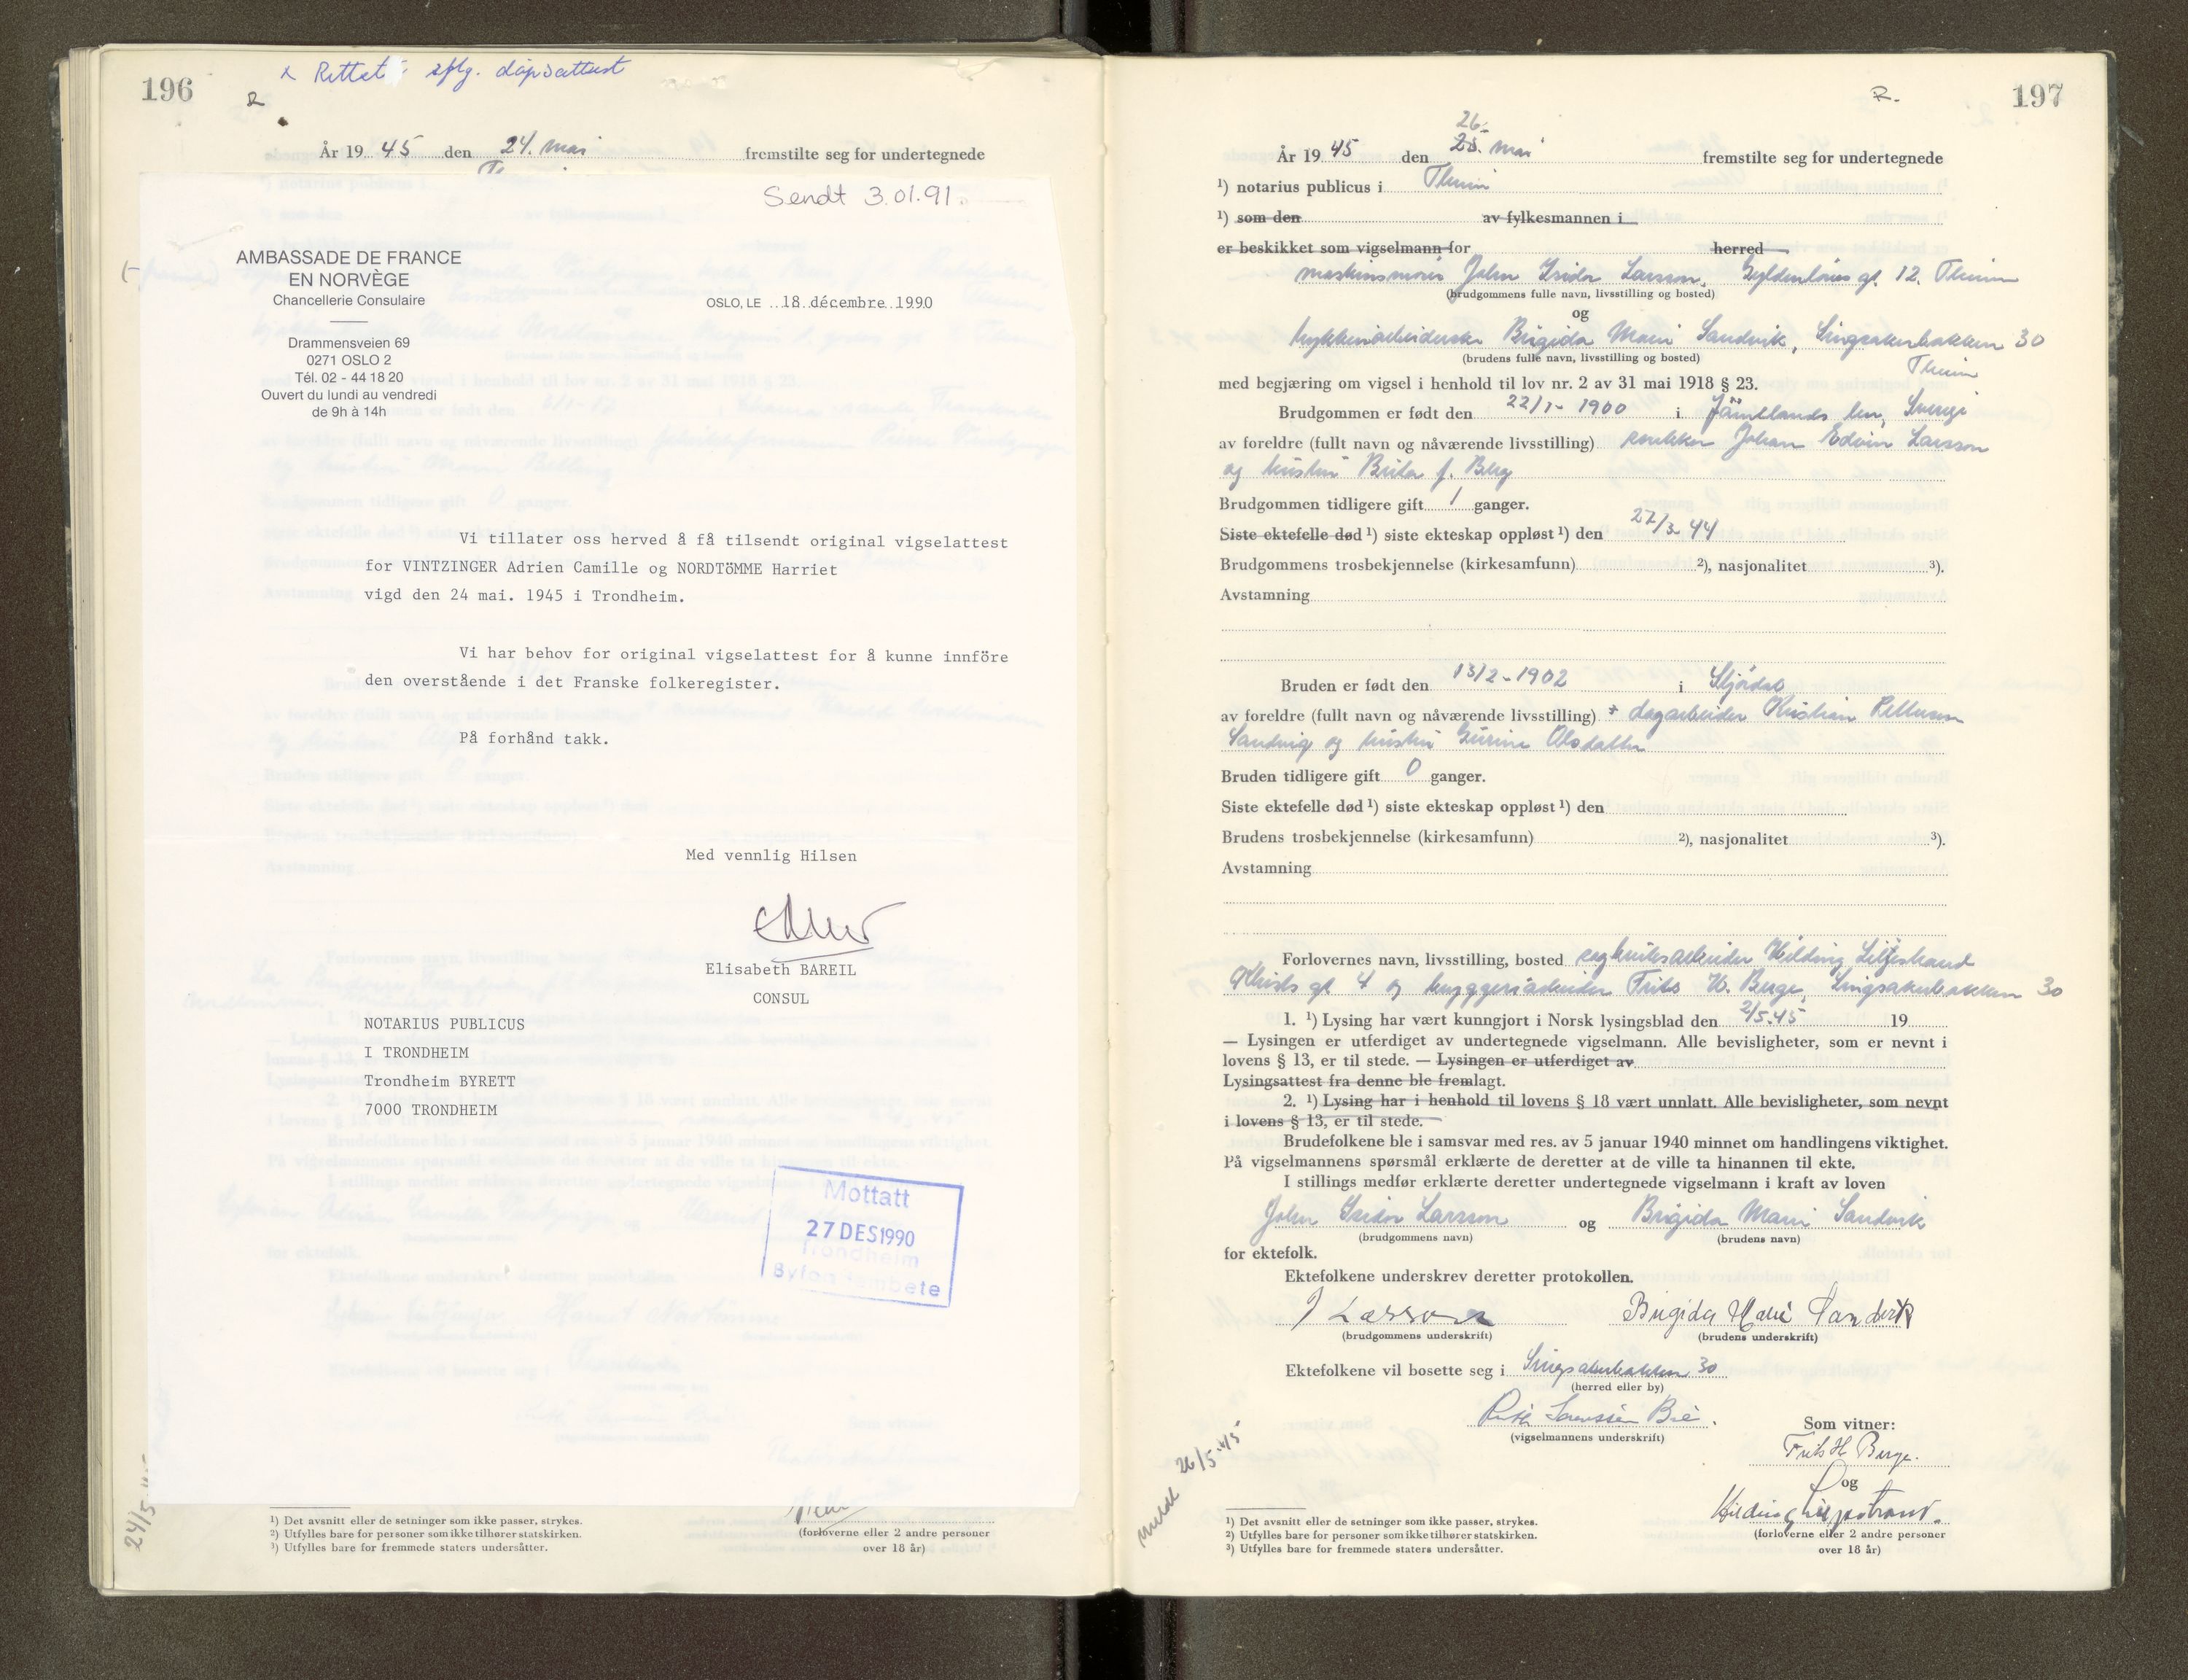 196
x Rettet iflg. dåpsattest
R
År 19 45 den 24. mai fremstilte seg for undertegnede
Sendt 3.01.91.
AMBASSADE DE FRANCE
EN NORVÈGE
Chancellerie Consulaire
OSLO, LE 18 décembre 1990
Drammensveien 69
0271 OSLO 2
Tél. 02 - 44 18 20
Ouvert du lundi au vendredi
de 9h à 14h
Vi tillater oss herved å få tilsendt original vigselattest
for VINTZINGER Adrien Camille og NORDTöMME Harriet
vigd den 24 mai. 1945 i Trondheim.
Vi har behov for original vigselattest for å kunne innföre
den overstående i det Franske folkeregister.
På forhånd takk.
Med vennlig Hilsen
Elisabeth BAREIL
CONSUL
NOTARIUS PUBLICUS
I TRONDHEIM
Trondheim BYRETT
7000 TRONDHEIM
Mottatt
27 DES 1990
Trondheim
Byfogdembete
24/5
¹) Det avsnitt eller de setninger som ikke passer, strykes.
²) Utfylles bare for personer som ikke tilhører statskirken.
³) Utfylles bare for fremmede staters undersåtter.
(forloverne eller 2 andre personer
over 18 år)
R.
197
26.
År 19 45 den 25. mai fremstilte seg for undertegnede
¹) notarius publicus i Theim
¹) som den av fylkesmannen i
er beskikket som vigselmann for herred
maskinsmører John Isidor Larsson, Gyldenløves gt. 12. Theim
(brudgommens fulle navn, livsstilling og bosted)
og
Brigida Marie Sandvik, Singsakerbakken 30
(brudens fulle navn, livsstilling og bosted)
Theim
med begjæring om vigsel i henhold til lov nr. 2 av 31 mai 1918 § 23.
Brudgommen er født den 22/1-1900 i Jämtlands len, Sverige
av foreldre (fullt navn og nåværende livsstilling) snekker Johan Edvin Larsson
og hustru Brita f. Berg
Brudgommen tidligere gift 1 ganger.
Siste ektefelle død ¹) siste ekteskap oppløst ¹) den 22/3-44
Brudgommens trosbekjennelse (kirkesamfunn) ²), nasjonalitet ³).
Avstamning
Bruden er født den 13/2-1902 i Stjørdal
av foreldre (fullt navn og nåværende livsstilling) + dagarbeider Kristian Pettersen
Sandvig og hustru Gurine Olsdatter
Bruden tidligere gift 0 ganger.
Siste ektefelle død ¹) siste ekteskap oppløst ¹) den
Brudens trosbekjennelse (kirkesamfunn) ²), nasjonalitet ³).
Avstamning
Forlovernes navn, livsstilling, bosted sagbruksarbeider Hilding Liljestrand
gt 4 og bryggeriarbeider Frits H. Berge, Singsakerbakken 30
1. ¹) Lysing har vært kunngjort i Norsk lysingsblad den 2/5.45 19
— Lysingen er utferdiget av undertegnede vigselmann. Alle bevisligheter, som er nevnt i
lovens § 13, er til stede. — Lysingen er utferdiget av
Lysingsattest fra denne ble fremlagt.
2. ¹) Lysing har i henhold til lovens § 18 vært unnlatt. Alle bevisligheter, som nevnt
i lovens § 13, er til stede.
Brudefolkene ble i samsvar med res. av 5 januar 1940 minnet om handlingens viktighet.
På vigselmannens spørsmål erklærte de deretter at de ville ta hinannen til ekte.
I stillings medfør erklærte deretter undertegnede vigselmann i kraft av loven
John Isidor Larsson og Brigida Marie Sandvik
(brudgommens navn) (brudens navn)
for ektefolk.
Ektefolkene underskrev deretter protokollen.
J Larsson Brigida Marie Sandvik
(brudgommens underskrift) (brudens underskrift)
Ektefolkene vil bosette seg i Singsakerbakken 30
(herred eller by)
(vigselmannens underskrift)
Som vitner:
Frits H Berge.
og
Hilding Liljestrand.
(forloverne eller 2 andre personer
over 18 år)
Meldt 26/5-45
¹) Det avsnitt eller de setninger som ikke passer, strykes.
²) Utfylles bare for personer som ikke tilhører statskirken.
³) Utfylles bare for fremmede staters undersåtter.